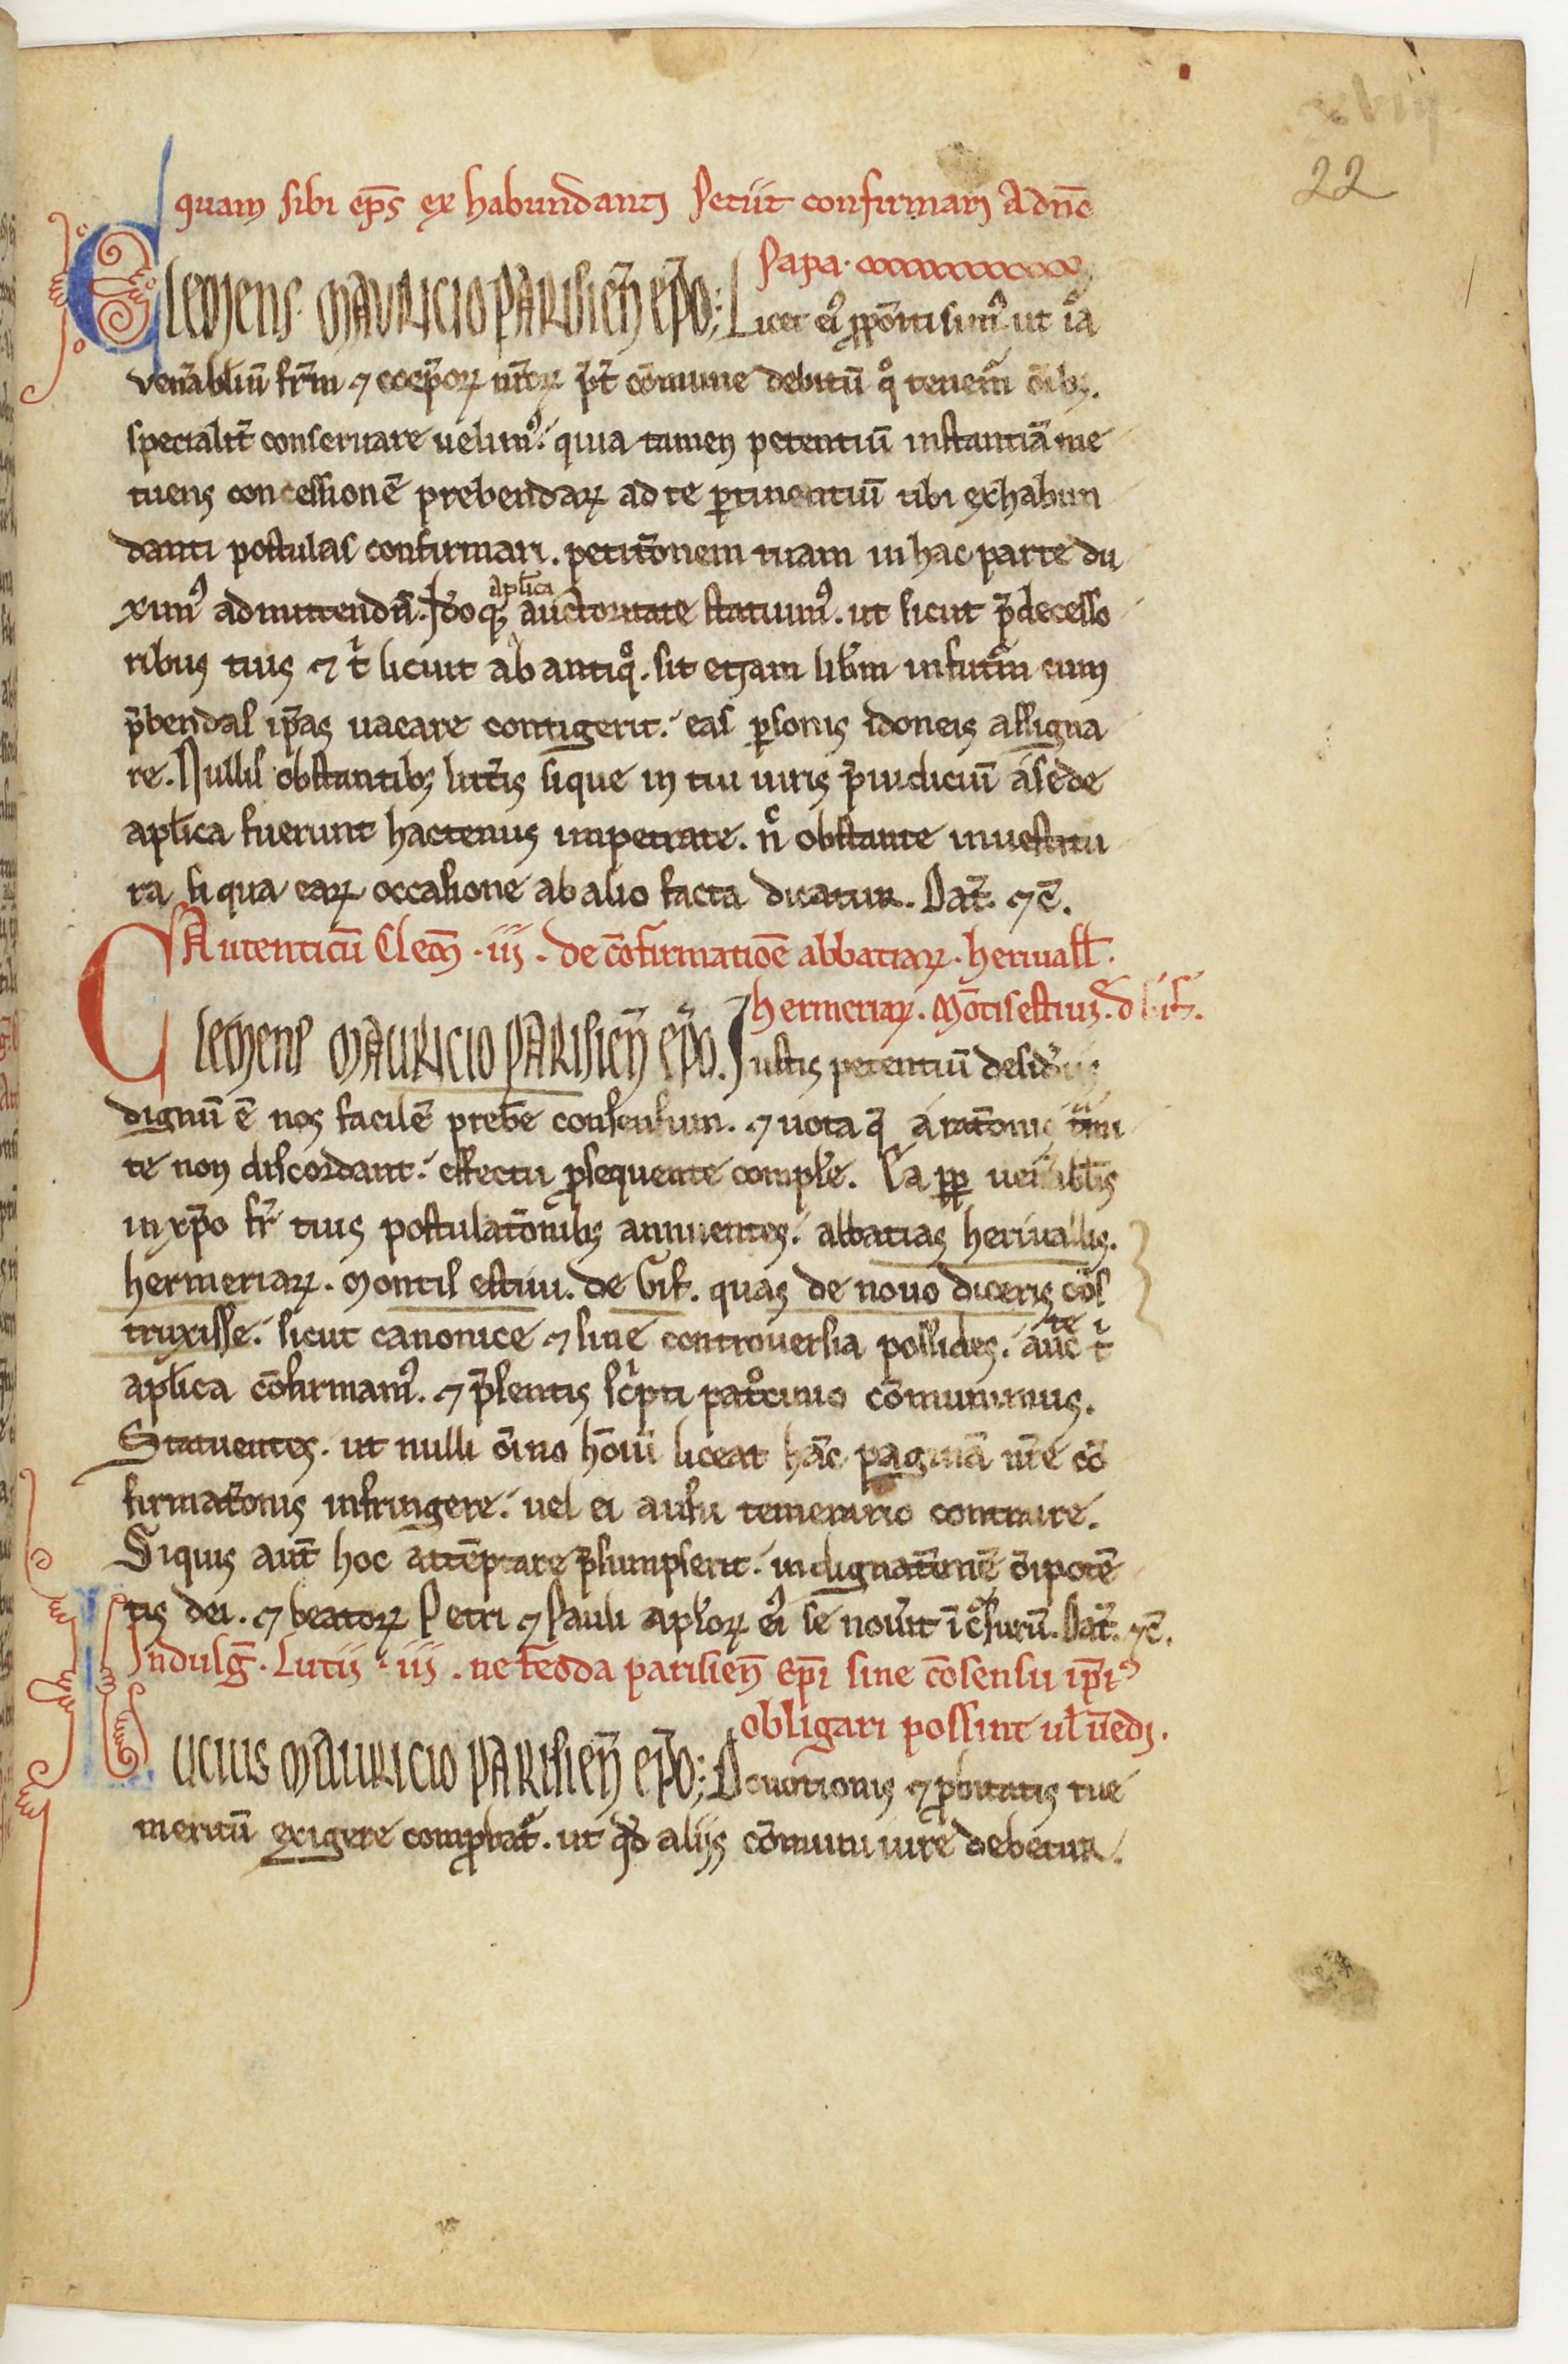 22
quam sibi ep̄s ex habundanti Petiit confirmari A dn̄o
Papa.
Clemens. Mauricio Parisien̄ ep̄o; Licet ei᷒ ꝓpōiti simꝰ ut iā
ven̄abliū fr̄m ⁊ coep̄oꝝ nr̄oꝝ p̄t̄ cōmune debitū qͦ tenem̄ ōibꝫ.
specialit̄ conseruare uelimꝰ. quia tamen petentiū instantiā me
tuens concessionē prebendaꝝ ad te ꝑtinentiū tibi ex habun
danti postulas confirmari. petitōnem tuam in hac parte du
ximꝰ admittendā. Ideoqꝫ aplica auctoritate statuimꝰ. ut sicut p̄decesso
ribus tuis ⁊ t̄ licuit ab antiqͦ. sit etiam lib̄m in futur̄m cum
p̄bendas ip̄as uacare contigerit. eas ꝑsonis idoneis assigna
re. Nullis obstantibꝫ litt̄is si que in tui iuris p̄iudiciū a sede
aplica fuerunt hactenus impetrate. n̄c obstante inuestitu
ra si qua eaꝝ occasione ab alio facta dicatur. Dat̄. ⁊c̄.
Autenticū Clem̄ .iij. de cōfirmatiōe abbatiaꝝ. heriuall̄.
hermeriaꝝ. Mōtis estiui. d
Clemens Mauricio Parisien̄ ep̄o. Iustis petentiū desid̄iis
dignū ē nos facilē prebe̅ consensum. ⁊ uota q̄ a ratōnis t̄mi
te non discordant. effectu ꝓsequente comple̅. Ea ꝓpt uen̄abilis
in xp̄o fr̄ tuis postulatōnibꝫ annuentes. abbatias heriuallis.
hermeriaꝝ. Montis estiui. de Gif. quas de nouo diceris cōs
truxisse. sicut canonice ⁊ sine controuersia possides. auc̄te t̄i
aplica cōfirmamꝰ. ⁊ p̄sentis sc̄pti pat̄ͦcinio cōmunimus.
Statuentes. ut nulli ōino hōiū liceat hāc paginā nr̄e cō
firmatōnis infringere. uel ei ausu temerario contraire.
Siquis aut̄ hoc attēptare p̄sumpserit. indignatōnē ōipotē
tis dei. ⁊ beatoꝝ Petri ⁊ Pauli aploꝝ ei᷒ se nou̅it īcͦsurū. Dat̄. ⁊c̄.
Indulḡ. Lucij .iij. ne feoda parisien̄ Ep̄i sine cōsensu ip̄iꝰ
obligari possint ul̄ uēdi.
Lucius Mauricio Parisien̄ ep̄o; Deuotionis ⁊ ꝓbitatis tue
meritū exigere comꝓbat̄. ut qd̄ aliis cōmuni iure debetur.